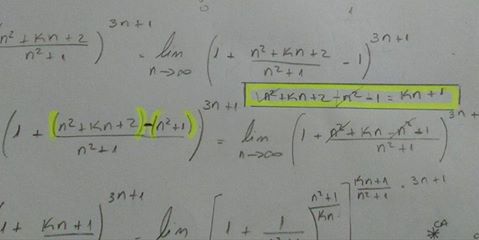 (n²+Kn+2 / n²+1)^3n+1 = lim n→∞ (1 + n²+Kn+2 / n²+1 - 1)^3n+1
n²+Kn+2-n²-1 = Kn+1
(1 + (n²+Kn+2)-(n²+1) / n²+1)^3n+1 = lim n→∞ (1 + n²+Kn-n²+1 / n²+1)^3n+
1 + Kn+1)^3n+1 = lim [1 + 1 n²+1 / Kn] Kn+1 / n²+1 · 3n+1